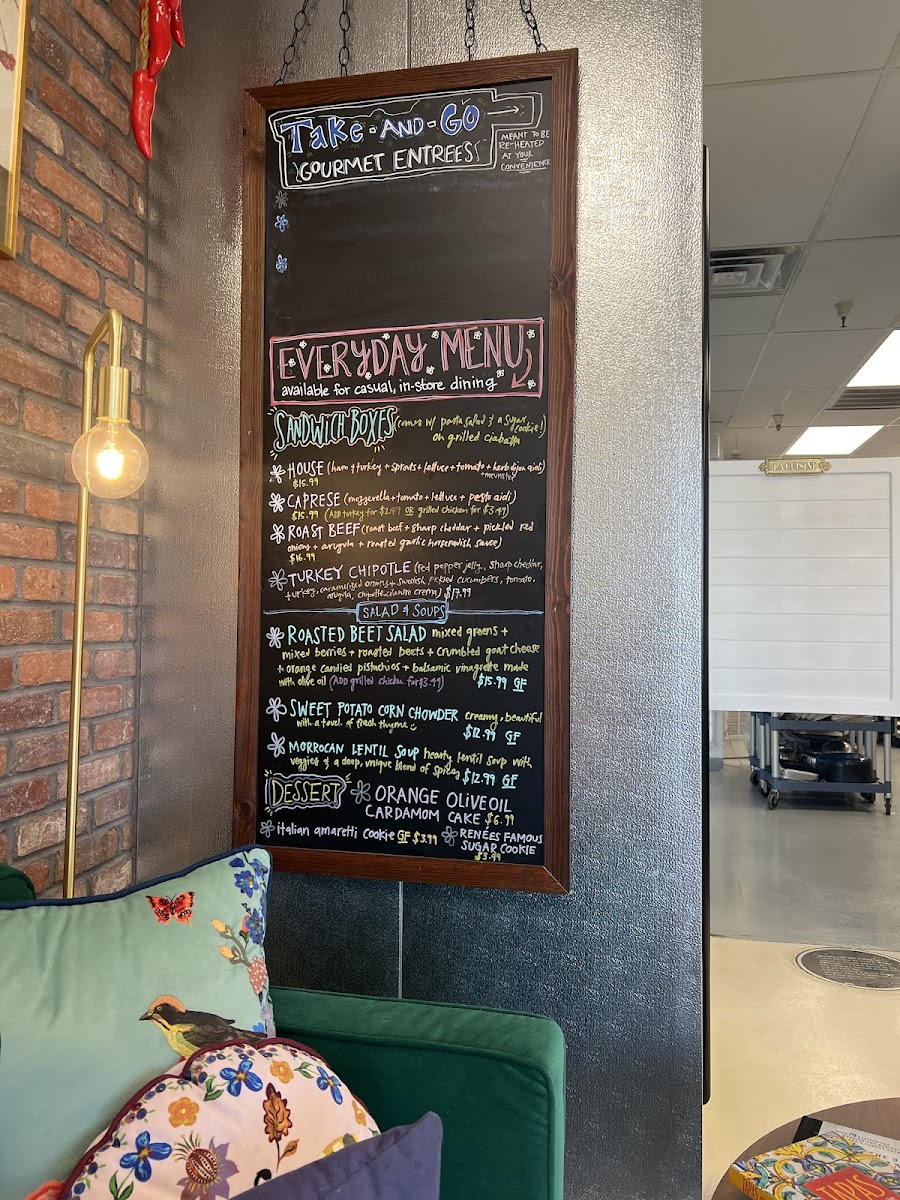 Take-AND-GO
GOURMET ENTREES
MEANT TO BE
RE-HEATED
AT YOUR
CONVENIENCE
EVERYDAY MENU
available for casual, in-store dining
SANDWICH BOXES (comes w/ pasta salad & a sugar cookie!)
on grilled ciabatta
HOUSE (ham & turkey + sprouts + lettuce + tomato + herb dijon aioli)
$15.99
CAPRESE (mozzerella + tomato + lettuce + pesto aioli)
$15.99 (ADD turkey for $2.49 OR grilled chicken for $3.49)
ROAST BEEF (roast beef + sharp cheddar + pickled red
onions + arugula + roasted garlic horseradish sauce)
$16.99
TURKEY CHIPOTLE (red pepper jelly, sharp cheddar,
turkey, caramelized onions + swedish pickled cucumbers, tomato,
arugula, chipotle cilantro crema) $17.99
SALAD & SOUPS
ROASTED BEET SALAD mixed greens +
mixed berries + roasted beets + crumbled goat cheese
+ orange candied pistachios + balsamic vinagrette made
with olive oil (ADD grilled chicken for $3.49) $15.99 GF
SWEET POTATO CORN CHOWDER creamy, beautiful
with a touch of fresh thyme $12.99 GF
MORROCAN LENTIL SOUP hearty lentil soup with
veggies & a deep, unique blend of spices $12.99 GF
DESSERT
ORANGE OLIVE OIL
CARDAMOM CAKE $6.99
italian amaretti cookie GF $3.99
RENÉES FAMOUS
SUGAR COOKIE
$3.99
LA CUISINE